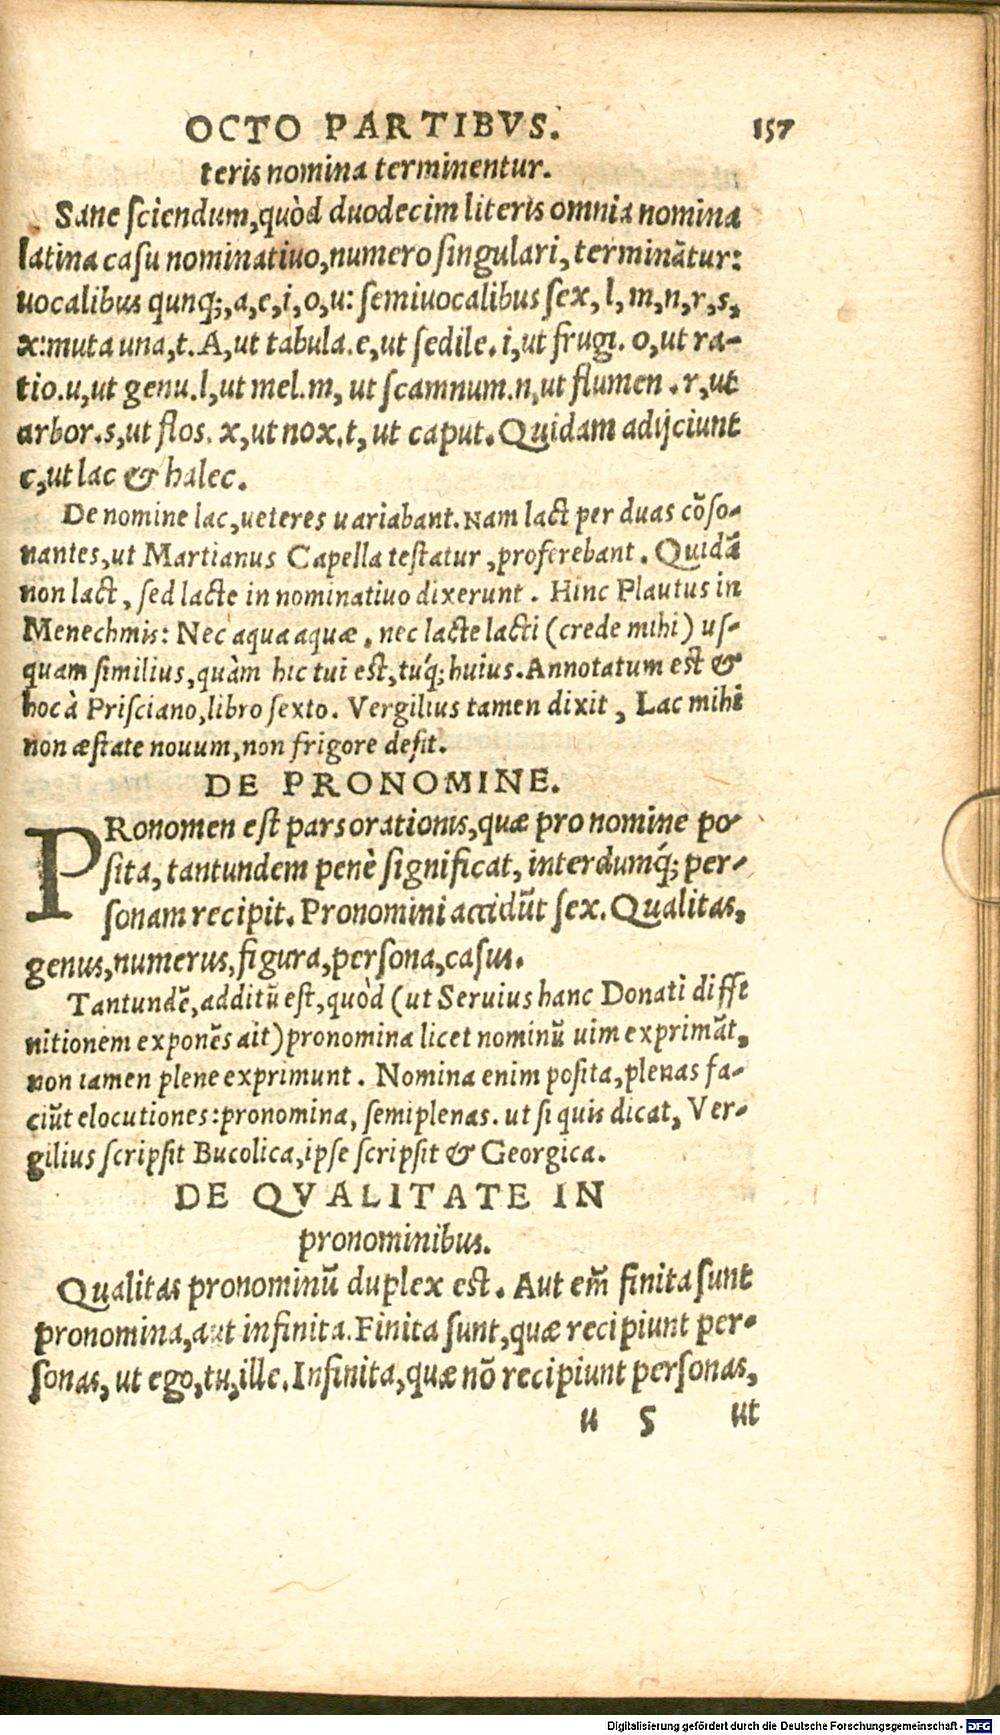 OCTO PARTIBVS. 157
teris nomina terminentur.
Sane sciendum, quòd duodecim literis omnia nomina
latina casu nominatiuo, numero singulari, terminãtur:
uocalibus qunq;, a, e, i, o, u: semiuocalibus sex, l, m, n, r, s,
x: muta una, t. A, ut tabula. e, ut sedile. i, ut frugi. o, ut ra-
tio. u, ut genu. l, ut mel. m, ut scamnum. n, ut flumen. r, ut
arbor. s, ut flos. x, ut nox. t, ut caput. Quidam adijciunt
c, ut lac & halec.
De nomine lac, ueteres uariabant. Nam lact per duas cõso-
nantes, ut Martianus Capella testatur, proferebant. Quidã
non lact, sed lacte in nominatiuo dixerunt. Hinc Plautus in
Menechmis: Nec aqua aquæ, nec lacte lacti (crede mihi) us-
quam similius, quàm hic tui est, tuq́; huius. Annotatum est &
hoc à Prisciano, libro sexto. Vergilius tamen dixit, Lac mihi
non æstate nouum, non frigore desit.
DE PRONOMINE.
PRonomen est pars orationis, quæ pro nomine po-
sita, tantundem penè significat, interdumq́; per-
sonam recipit. Pronomini accidũt sex. Qualitas,
genus, numerus, figura, persona, casus.
Tantundẽ, additũ est, quòd (ut Seruius hanc Donati diffi
nitionem exponẽs ait) pronomina licet nominũ uim exprimãt,
non tamen plene exprimunt. Nomina enim posita, plenas fa-
ciũt elocutiones: pronomina, semiplenas. ut si quis dicat, Ver-
gilius scripsit Bucolica, ipse scripsit & Georgica.
DE QVALITATE IN
pronominibus.
Qualitas pronominũ duplex est. Aut em̃ finita sunt
pronomina, aut infinita. Finita sunt, quæ recipiunt per-
sonas, ut ego, tu, ille. Infinita, quæ nõ recipiunt personas,
u 5 ut
Digitalisierung gefördert durch die Deutsche Forschungsgemeinschaft - DFG